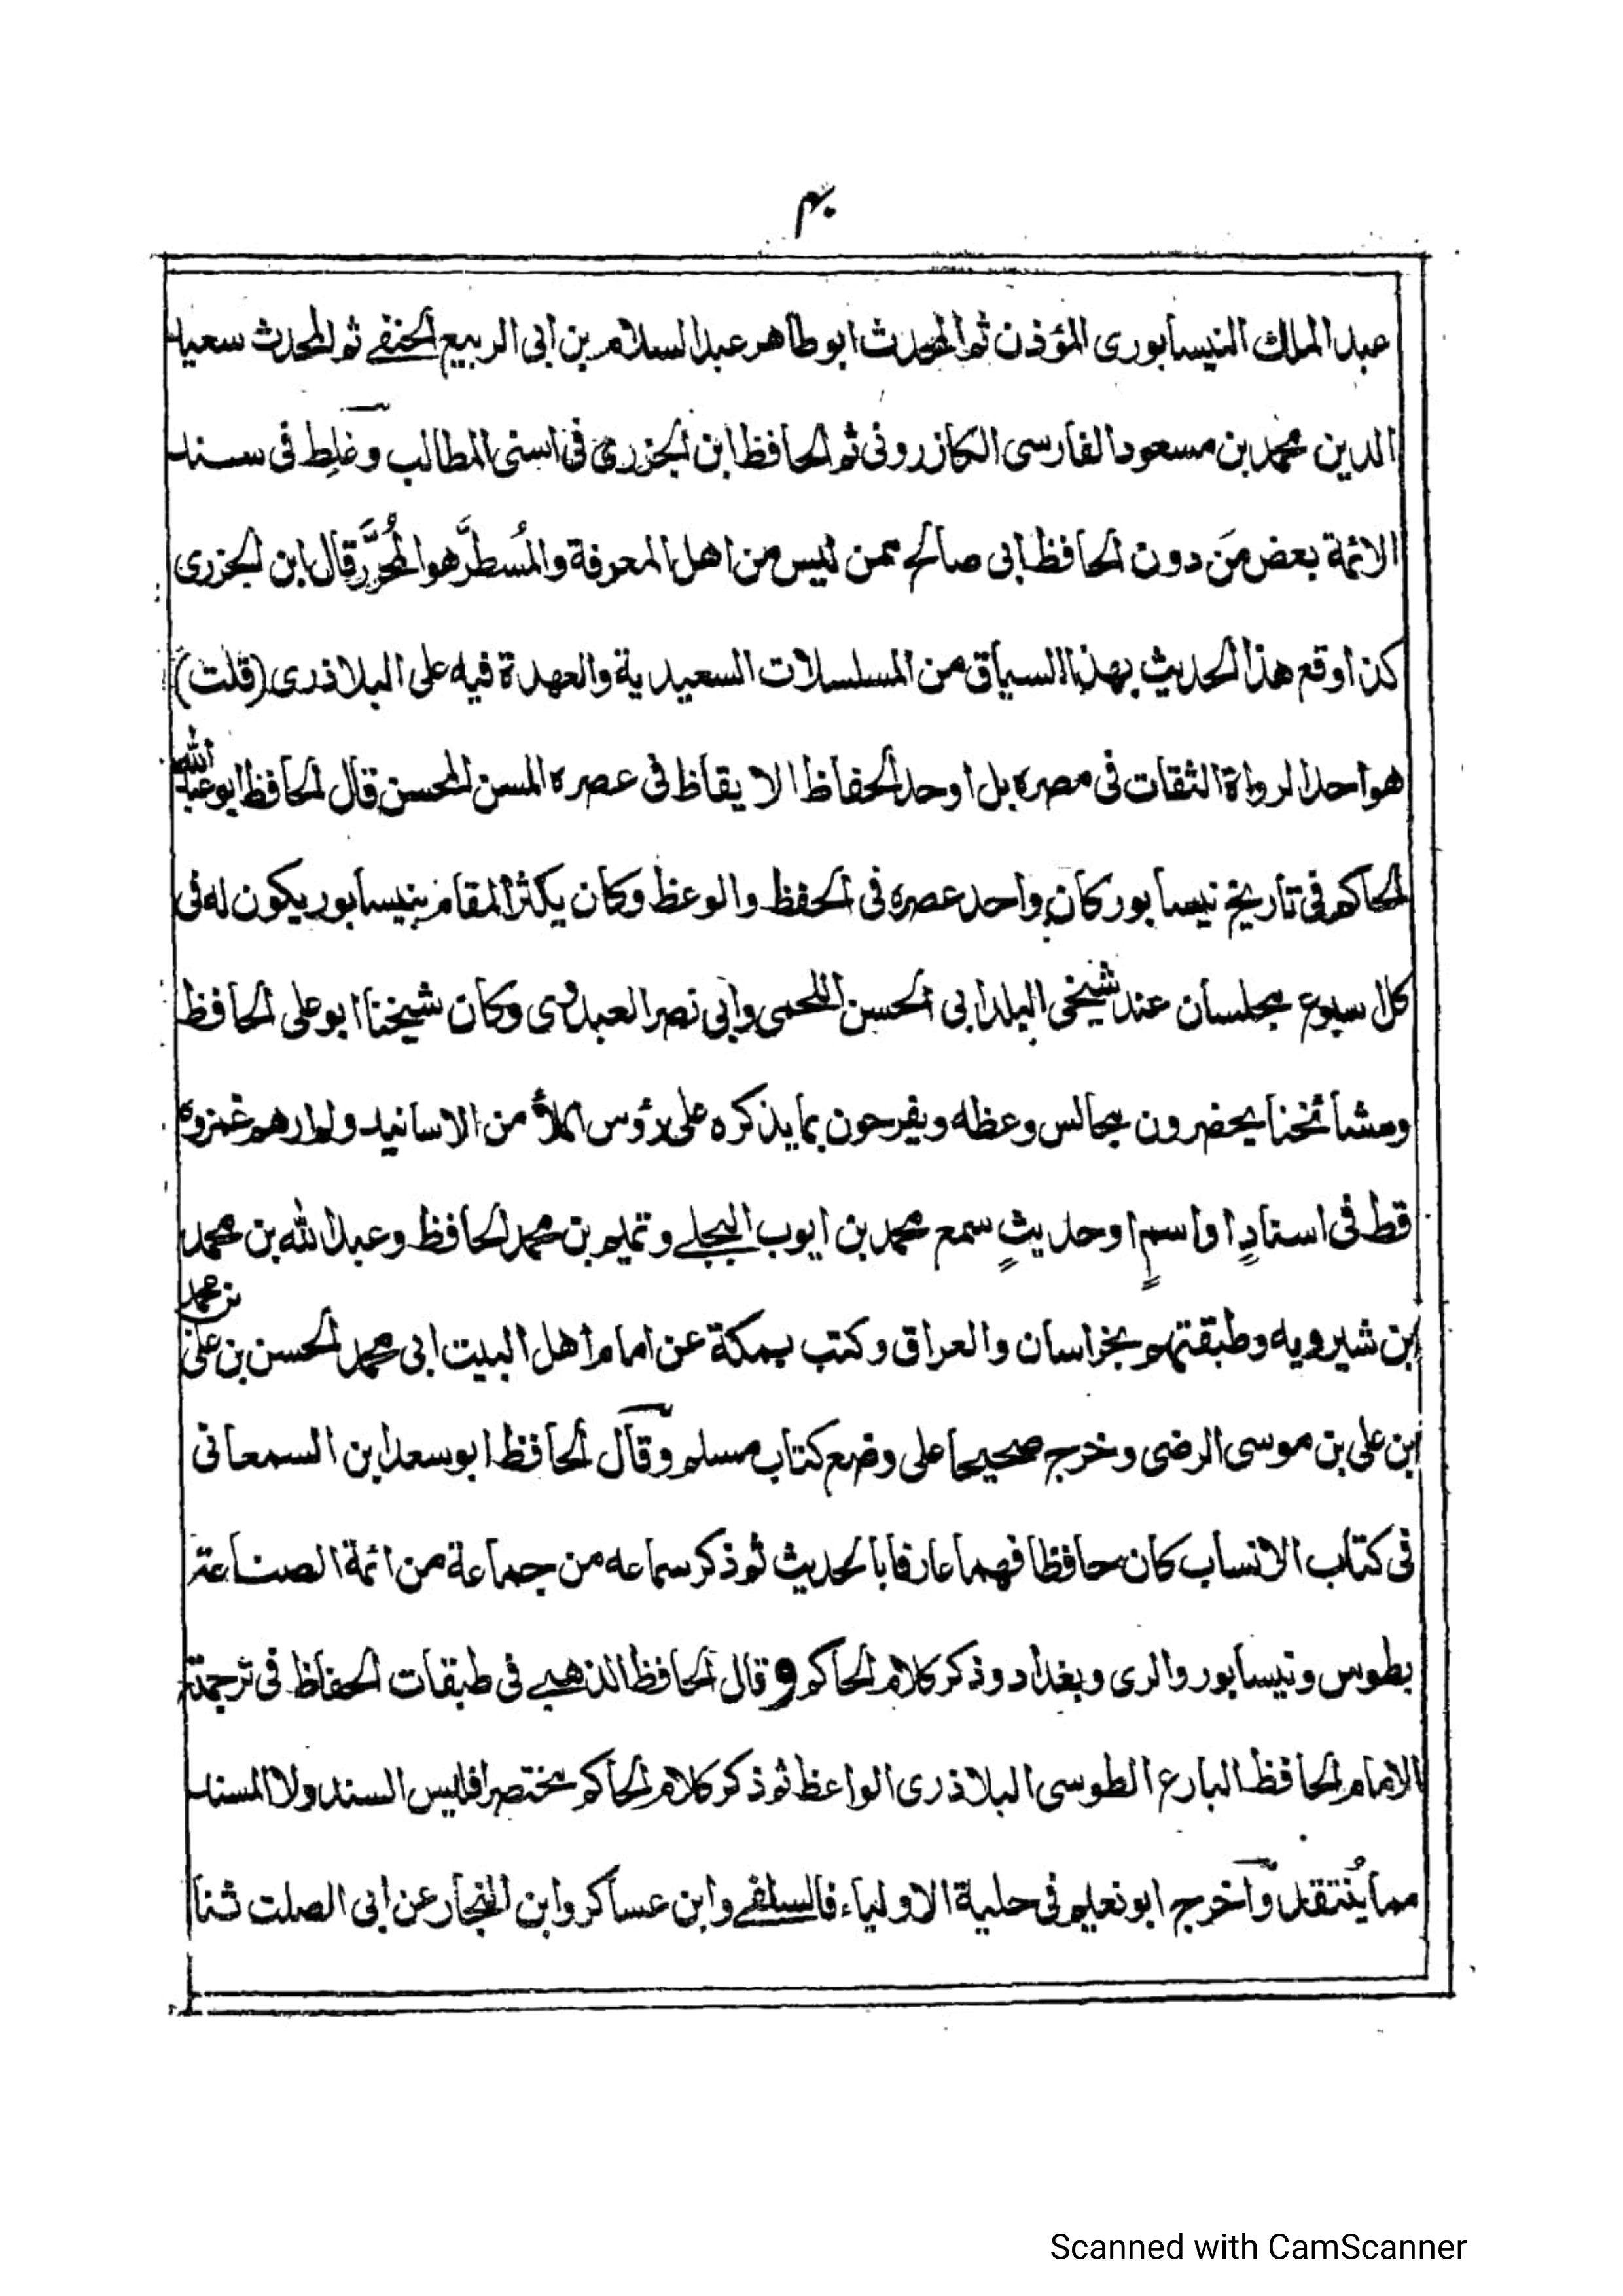 عبد الملك النيسابورى المؤذن ثم المحدث ابو طاهر عبد السلام بن ابى الربيع الحنفے ثم المحدث سعيد
الدين محمد بن مسعود الفارسى الكازرونى ثم الحافظ ابن الجزرى فى اسنى المطالب وغلِط فى سند
الائمة بعض مَن دون الحافظ ابى صالح ممن ليس من اهل المعرفة والمُسطَّر هو المُحرَّر قال ابن الجزرى
كذا وقع هذا الحديث بهذا السياق من المسلسلات السعيدية والعهدة فيه على البلاذرى (قلت)
هو احد الرواة الثقات فى مصره بل اوحد الحفاظ الايقاظ فى عصره المسن المحسن قال الحافظ ابو عبد الله
الحاكم فى تاريخ نيسابور كان واحد عصره فى الحفظ والوعظ وكان يكثر المقام بنيسابور يكون له فى
كل سبوع مجلسان عند شيخى البلد ابى الحسن اللحمى وابى نصر العبدوى وكان شيخنا ابو على الحافظ
ومشائخنا يحضرون مجالس وعظه ويفرحون بما يذكره على رؤس الملأ من الاسانيد ولم ارهم غمزوه
قط فى اسنادٍ او اسمٍ او حديثٍ سمع محمد بن ايوب البجلے وتميم بن محمد الحافظ وعبد الله بن محمد
ابن شيرويه وطبقتهم بخراسان والعراق وكتب بمكة عن امام اهل البيت ابى محمد الحسن بن على بن محمد
ابن على بن موسى الرضى وخرج صحيحا على وضع كتاب مسلم وقال الحافظ ابو سعد ابن السمعانى
فى كتاب الانساب كان حافظا فهما عارفا بالحديث ثم ذكر سماعه من جماعة من ائمة الصناعة
بطوس ونيسابور والرى وبغداد وذكر كلام الحاكم وقال الحافظ الذهبے فى طبقات الحفاظ فى ترجمة
الامام الحافظ البارع الطوسى البلاذرى الواعظ ثم ذكر كلام الحاكم مختصرا فليس السند ولا المسند
مما يُنتقد واخرج ابو نعيم فى حلية الاولياء فالسلفے وابن عساكر وابن النجار عن ابى الصلت ثنا
Scanned with CamScanner